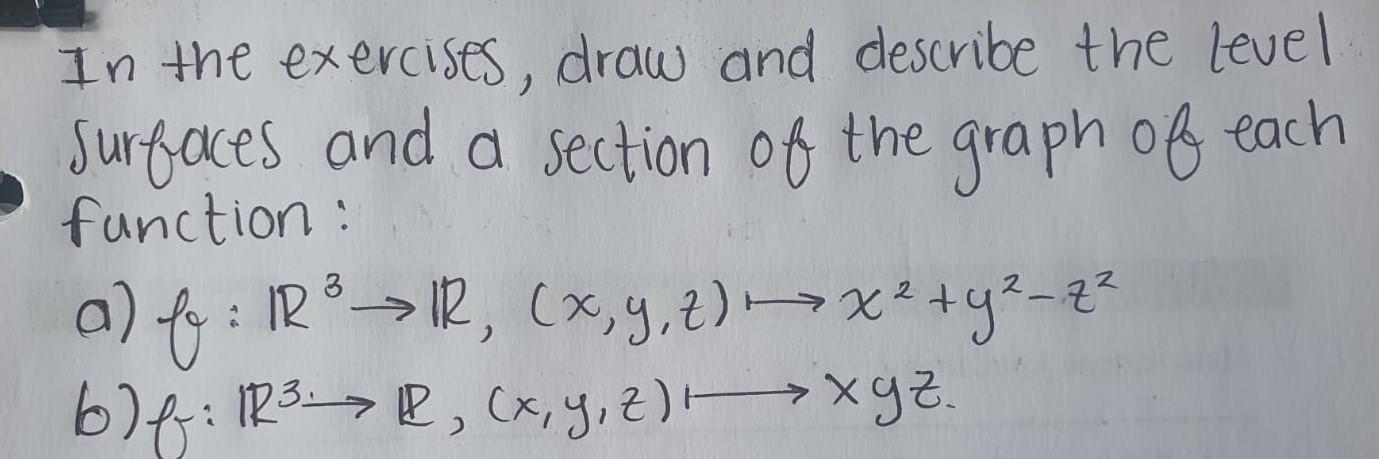 In the exercises, draw and describe the level
surfaces and a section of the graph of each
function:
a) f: ℝ³ → ℝ, (x, y, z) ⟼ x² + y² - z²
b) f: ℝ³ → ℝ, (x, y, z) ⟼ xyz.